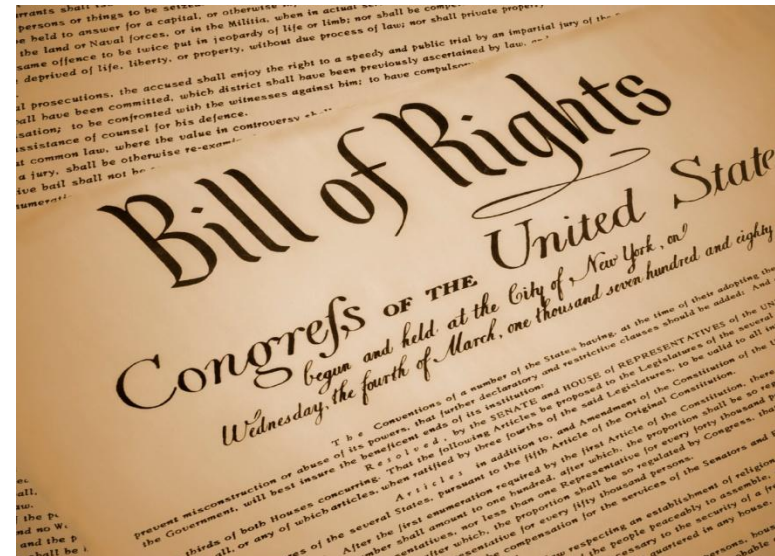 rrants shall
persons or things to be seized
be held to answer for a capital, or otherwise
the land or Naval forces, or in the Militia, when in actual
same offence to be twice put in jeopardy of life or limb; nor shall be
deprived of life, liberty, or property, without due process of law; nor shall private property
al prosecutions, the accused shall enjoy the right to a speedy and public trial by an impartial jury of the
all have been committed, which district shall have been previously ascertained by law,
sation; to be confronted with the witnesses against him; to have compulsory
ssistance of counsel for his defence.
at common law, where the value in controversy shall
a jury, shall be otherwise re-exami
ive bail shall not be
numerati
Bill of Rights
Congreſs OF THE United State
begun and held at the City of New York, on
Wednesday, the fourth of March, one thousand seven hundred and eighty
The Conventions of a number of the States having, at the time of their adopting the
prevent misconstruction or abuse of its powers, that further declaratory and restrictive clauses should be added: And
the Government, will best insure the beneficent ends of its institution:
Resolved, by the SENATE and HOUSE of REPRESENTATIVES of the UN
thirds of both Houses concurring. That the following Articles be proposed to the Legislatures of the several
all, or any of which articles, when ratified by three fourths of the said Legislatures, to be valid to all in
Articles in addition to, and Amendment of the Constitution of the U
es of the several States, pursuant to the fifth Article of the Original Constitution.
After the first enumeration required by the first Article of the Constitution, there
mber shall amount to one hundred, after which, the proportion shall be so reg
entatives, nor less than one Representative for every forty thousand p
after which, the proportion shall be so regulated by Congress, tha
sentative for every fifty thousand persons.
the compensation for the services of the Senators and
respecting an establishment of religion
the people peaceably to assemble,
necessary to the security of a fr
quartered in any house,